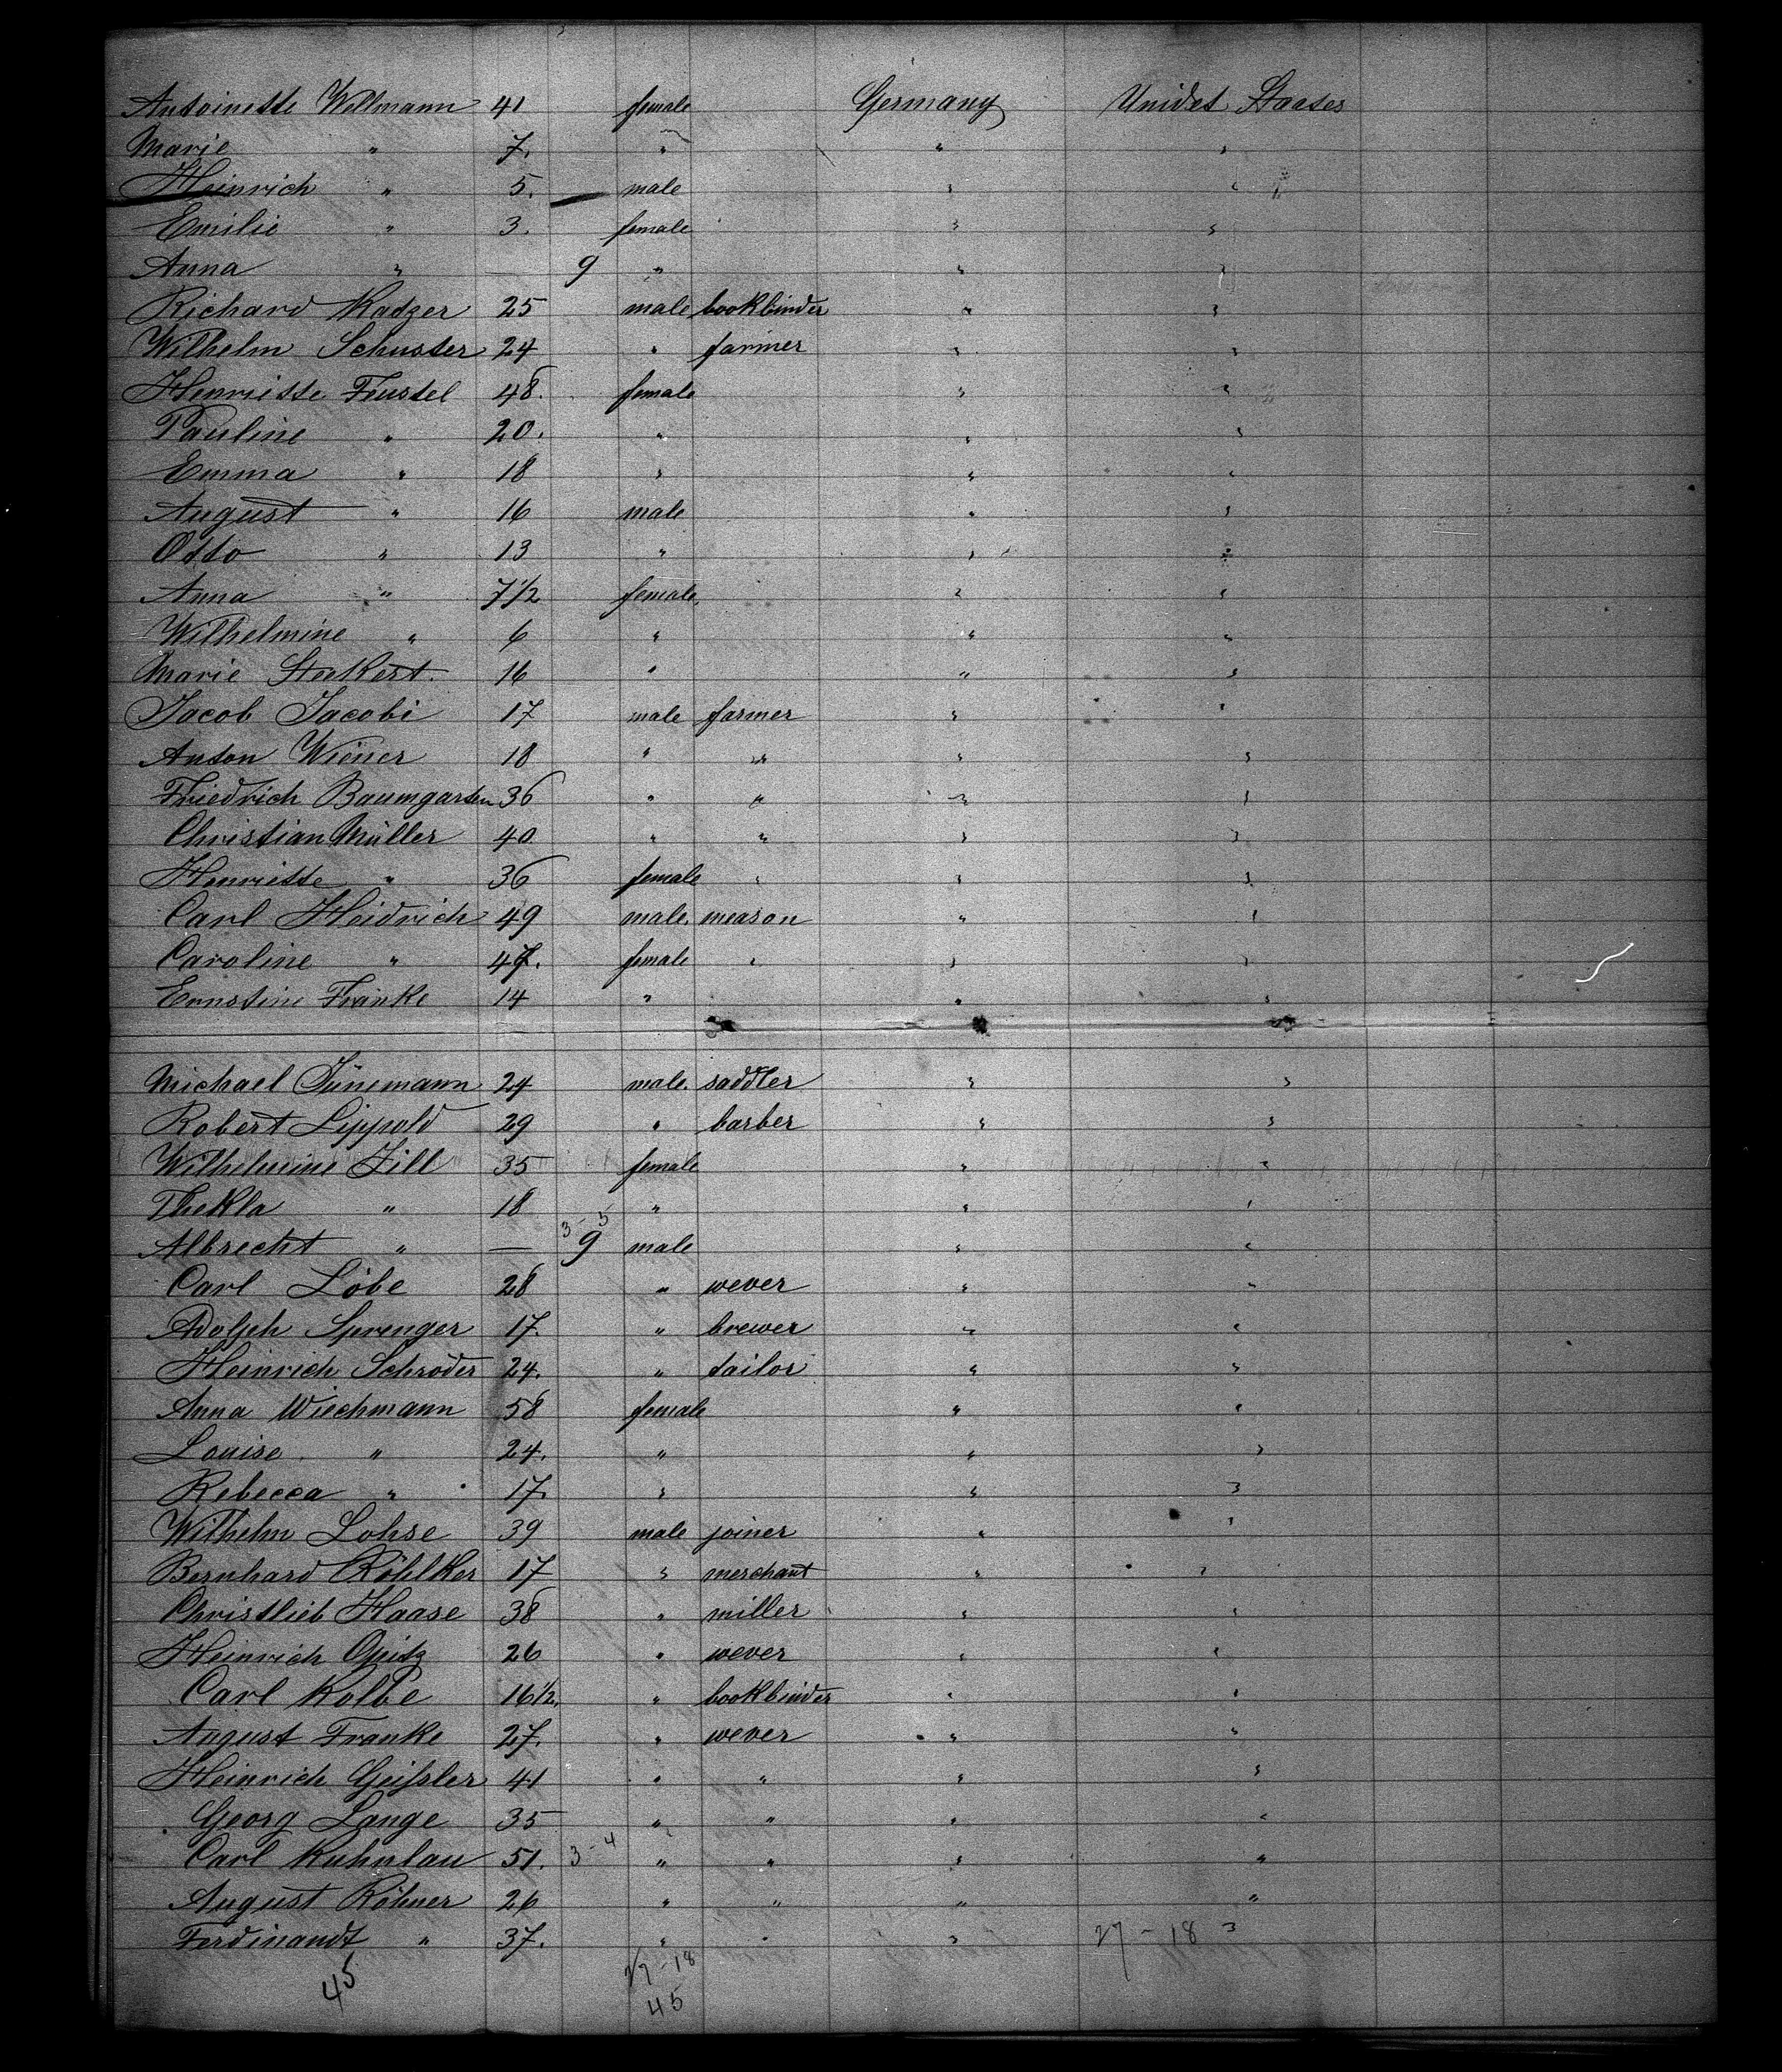 Antoinette Wellmann 41 female Germany Unidet Staates
Marie " 7. " " "
Heinrich " 5. male " "
Emilie " 3. female " "
Anna " — 9 " " "
Richard Kadzer 25 male bookbinder " "
Wilhelm Schuster 24 " farmer " "
Henriette Feustel 48. female " "
Pauline " 20. " " "
Emma " 18 " " "
August " 16 male " "
Otto " 13 " " "
Anna " 7 1/2 female " "
Wilhelmine " 6 " " "
Marie 16 " " "
Jacob Jacobi 17 male farmer " "
Anton Wiener 18 " " " "
Friedrich Baumgarten 36 " " " "
Christian Müller 40 " " " "
Henriette " 36 female " " "
Carl Heidrich 49 male. meason " "
Caroline " 47. female " " "
Ernstine Franke 14 " " "
Michael Jünemann 24 male. saddler " "
Robert Lippold 29 " barber " "
Wilhelmine Zill 35 female " "
Thekla " 18 " " "
3-5
Albrecht " — 9 male " "
Carl Löbe 28 " wever " "
Adolph Sprenger 17. " brewer " "
Heinrich Schröder 24. " tailor " "
Anna Wiechmann 58 female " "
Louise " 24. " " "
Rebecca " 17. " " "
Wilhelm Lohse 39 male joiner " "
Bernhard Röhlker 17 " merchant " "
Christlieb Haase 38 " miller " "
Heinrich Opitz 26 " wever " "
Carl Kolbe 16 1/2. " bookbinder " "
August Franke 27. " wever " "
Heinrich Geißler 41 " " " "
Georg Lange 35 " " " "
Carl Kuhnlau 51. 3-4 " " " "
August Röhner 26 " " " "
Ferdinandt " 37. " " " 27-18 "
45 27-18
45